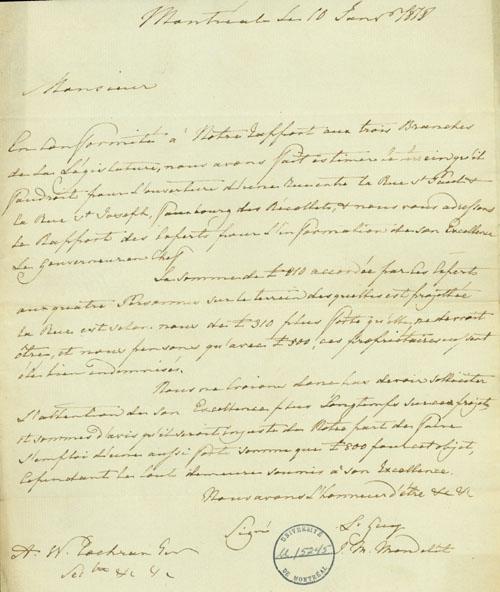 Montréal le 10 Janvr 1828
Monsieur
En conformité à Notre Rapport aux trois Branches
de la Législature, nous avons fait estimer le terrein qu'il
faudroit pour l'ouverture d'une Rue entre la Rue St Paul &
la Rue St Joseph, Faubourg des Récollets, & nous vous adressons
le Rapport des Experts, pour l'information de son Excellence
Le Gouverneur en Chef
La somme de £810 accordée par les Experts
aux quatre Personnes sur le terrein desquelles est projettée
la Rue est selon nous de £310 plus forte qu'elle ne devroit
être, et nous pensons qu'avec £500, ces propriétaires
été bien indemnisés.
Nous ne croions donc pas devoir solliciter
l'attention de son Excellence plus longtemps sur ce projet
et sommes d'avis qu'il seroit injuste de Notre part de faire
l'emploi d'une aussi forte somme que £800 pour cet objet,
Cependant le tout demeure soumis à son Excellence.
Nous avons l'honneur d'être &c &c
Signé L. Guy
J. M. Mondelet
A. W. Cochran Esr
&c &c
UNIVERSITÉ
U. 15245
DE MONTRÉAL